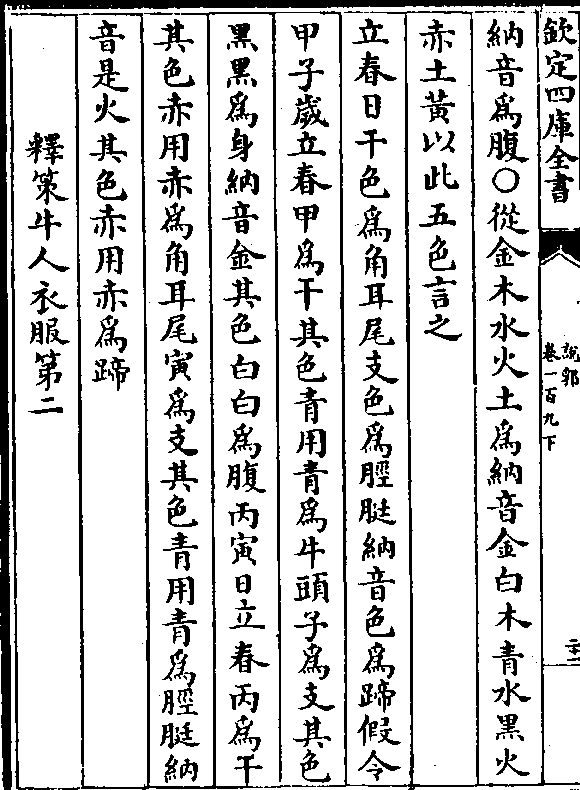 欽定四庫全書
說郛
卷一百九下
二十二
納音為腹○從金木水火土為納音金白木青水黑火
赤土黃以此五色言之
立春日干色為角耳尾支色為脛䏰納音色為蹄假令
甲子歲立春甲為干其色青用青為牛頭子為支其色
黑黑為身納音金其色白白為腹丙寅日立春丙為干
其色赤用赤為角耳尾寅為支其色青用青為脛䏰納
音是火其色赤用赤為蹄
釋策牛人衣服第二